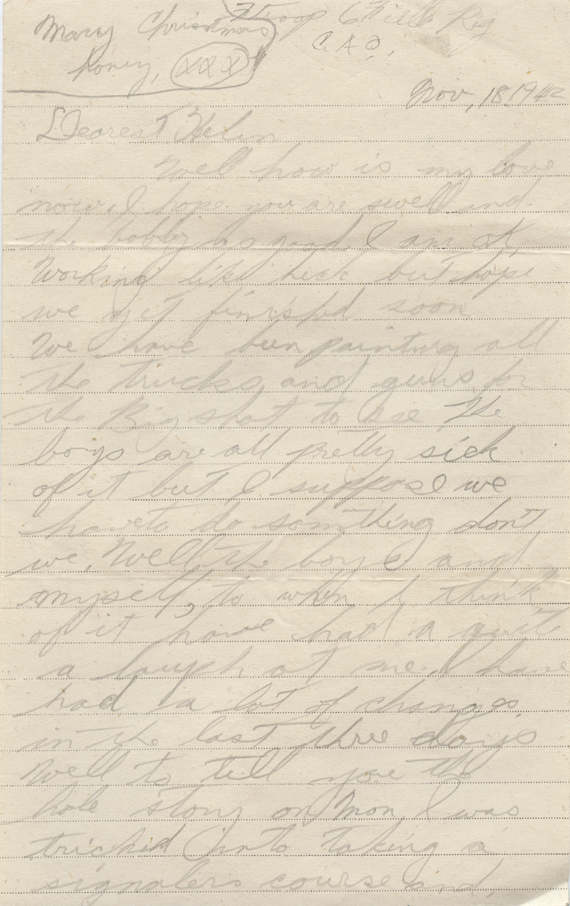 Mary Christmas
honey, xxx
Troop 6 Field Reg
C.A.O.
Nov, 18 1942
Dearest Helen
Well how is my love
now, I hope you are swell and
the bobby his good I am
Working like heak but hope
we get finishd soon
We have been painting all
the trucks and guns for
the Big shot to see The
boys are all pretty sick
of it but I suppose we
have to do somthing don't
we, Well the boys and
myself, to when I think
of it have had a quite
a laugh at me. I have
had a lot of changes
in the last three days
Well to tell you the
hole story on Mon, I was
trickid into taking a
signalers course and,